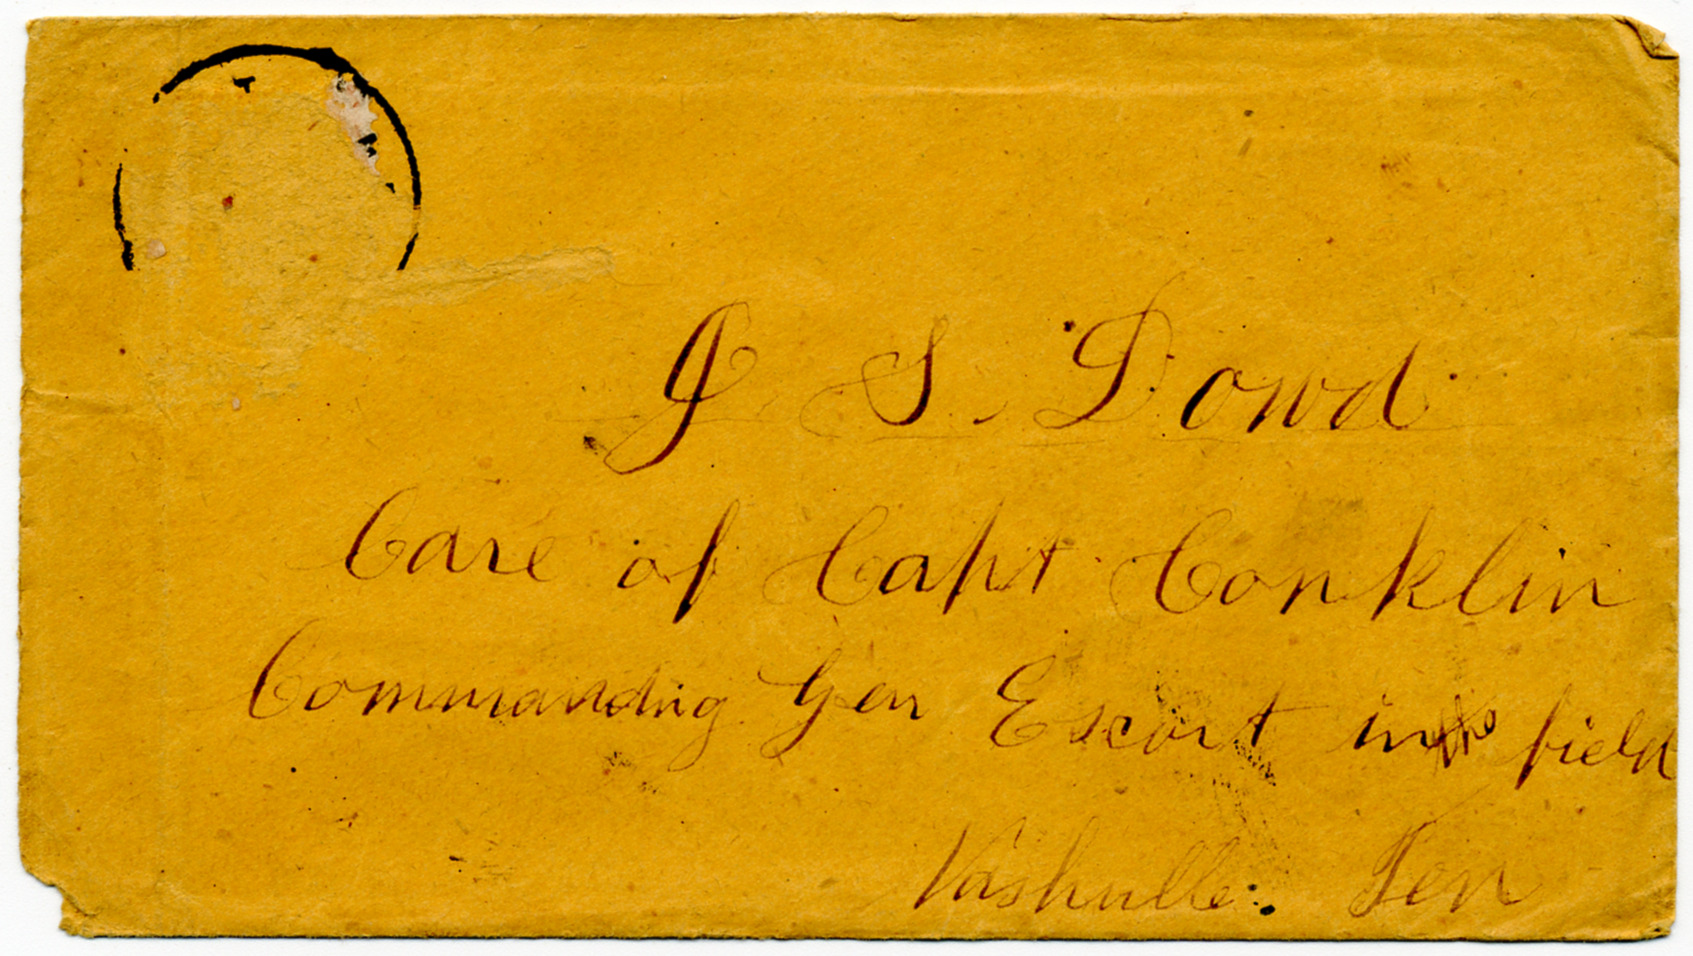 J S. Dowd
Care of Capt Conklin
Commanding Gen Escort in field
Nashville. Ten